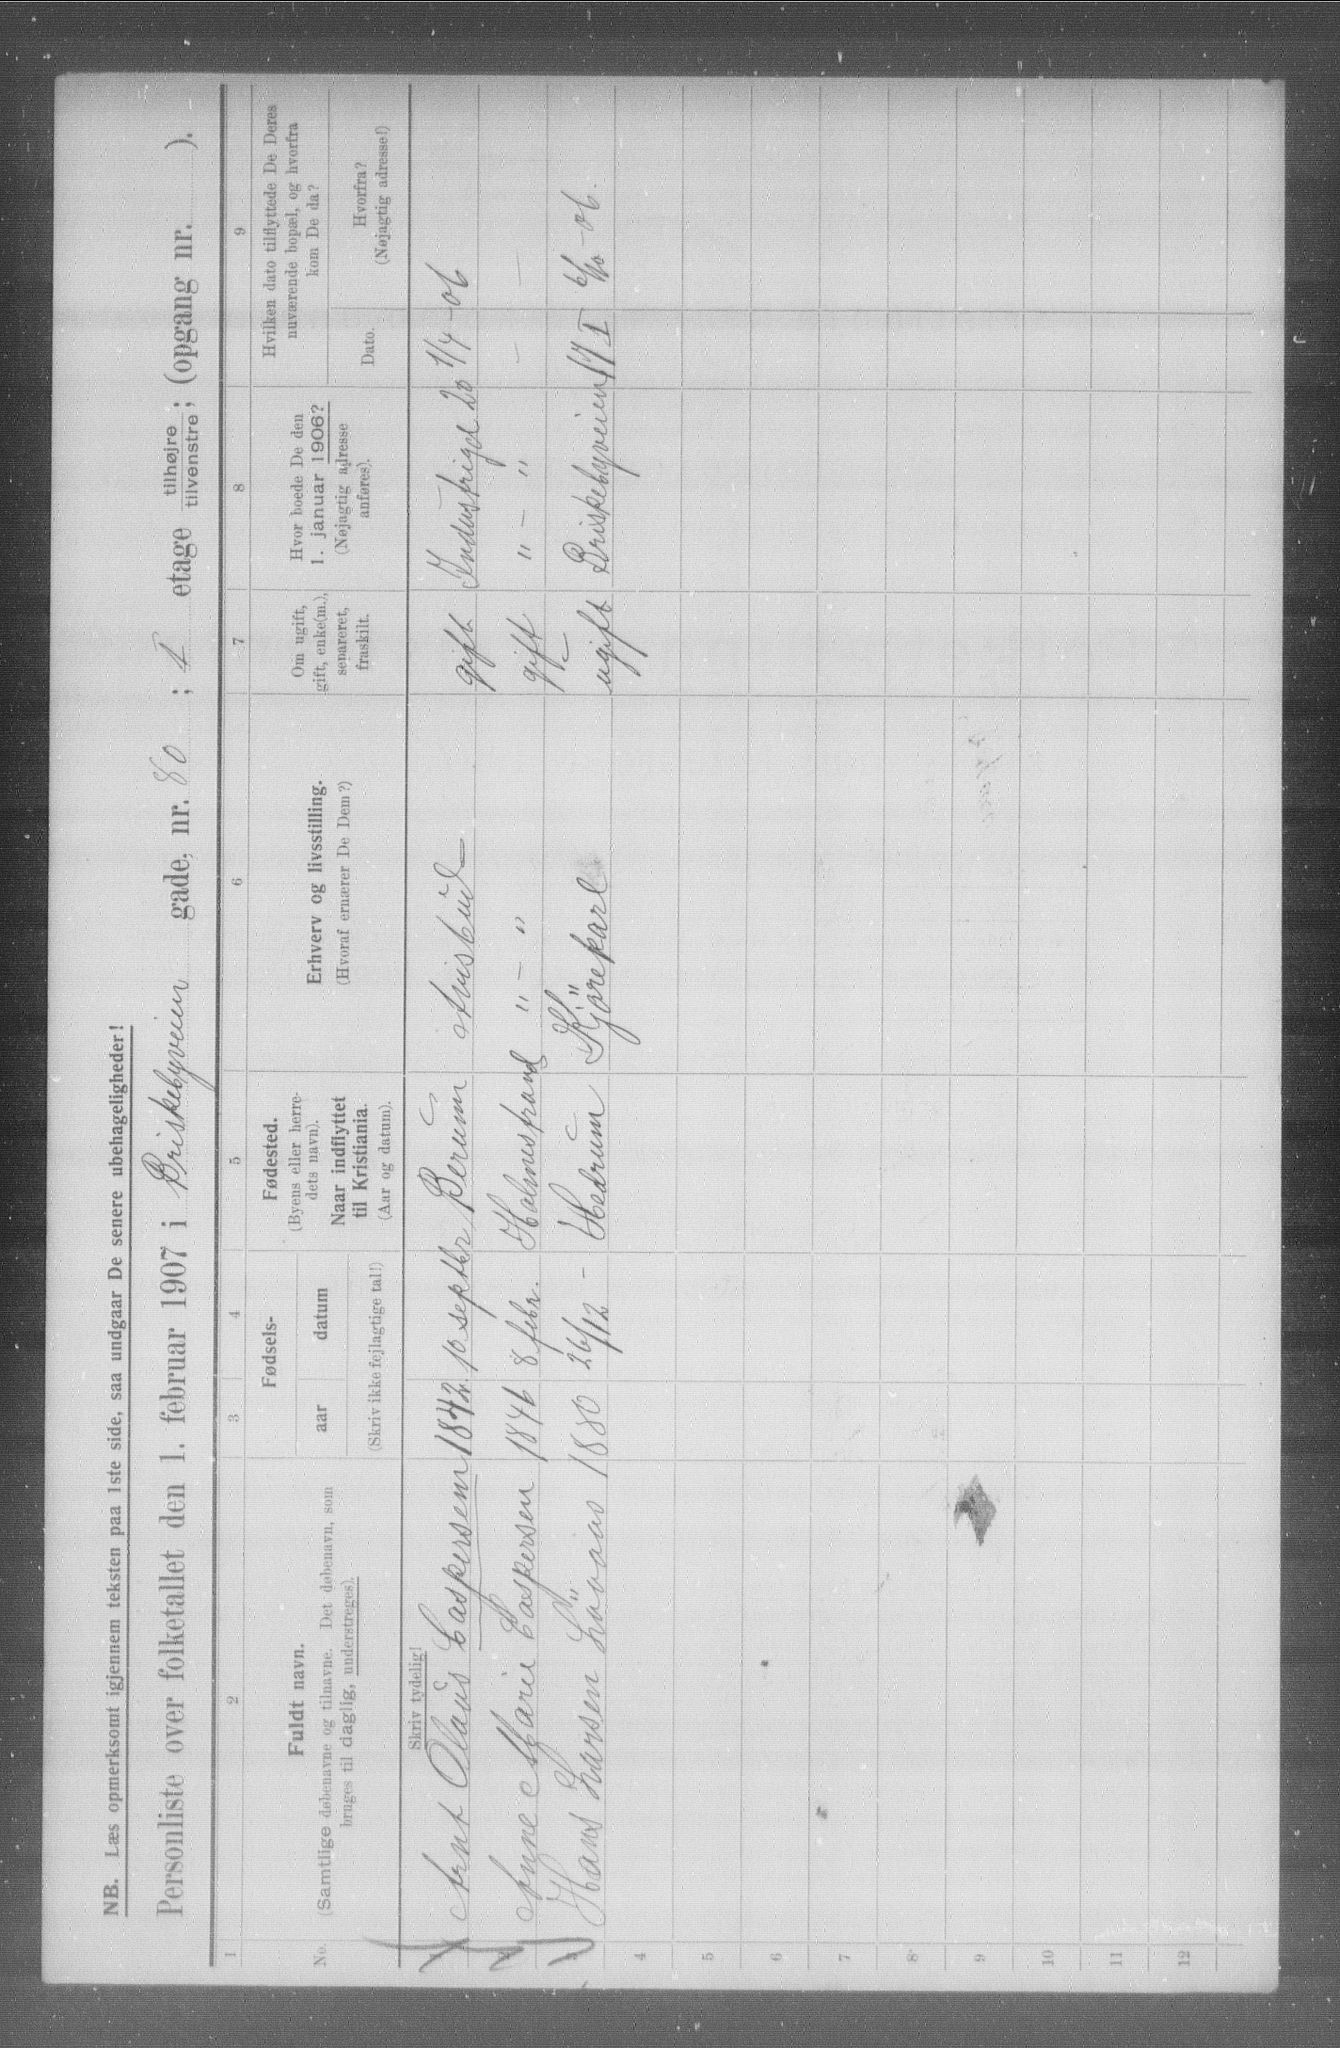 NB. Læs opmerksomt igjennem teksten paa 1ste side, saa undgaar De senere ubehageligheder!
Personliste over folketallet den 1. februar 1907 i Briskebyveien gade, nr. 80 ; I etage tilhøjre tilvenstre ; (opgang nr. ).
1 2 3 4 5 6 7 8 9
No.
Fuldt navn.
(Samtlige døbenavne og tilnavne. Det døbenavn, som
bruges til daglig, understreges).
Fødsels-
aar datum
(Skriv ikke fejlagtige tal!)
Fødested.
(Byens eller herre-
dets navn).
Naar indflyttet
til Kristiania.
(Aar og datum).
Erhverv og livsstilling.
(Hvoraf ernærer De Dem?)
Om ugift,
gift, enke(m.),
separeret,
fraskilt.
Hvor boede De den
1. januar 1906?
(Nøjagtig adresse
anføres).
Hvilken dato tilflyttede De Deres
nuværende bopæl, og hvorfra
kom De da?
Dato.
Hvorfra?
(Nøjagtig adresse!)
Skriv tydelig!
Arnt Olaus Caspersen 1842 10 septbr Berum Avisbud gift Industrigd 20 1/4 - 06
Anne Marie Caspersen 1846 8 febr. Holmestrand " - " gift " - " - -
3 Hans Larsen Løvaas 1880 26/12 - Hedrum Kjørekarl ugift Briskebyveien 17 I 6/10 - 06.
4
5
6
7
8
9
10
11
12